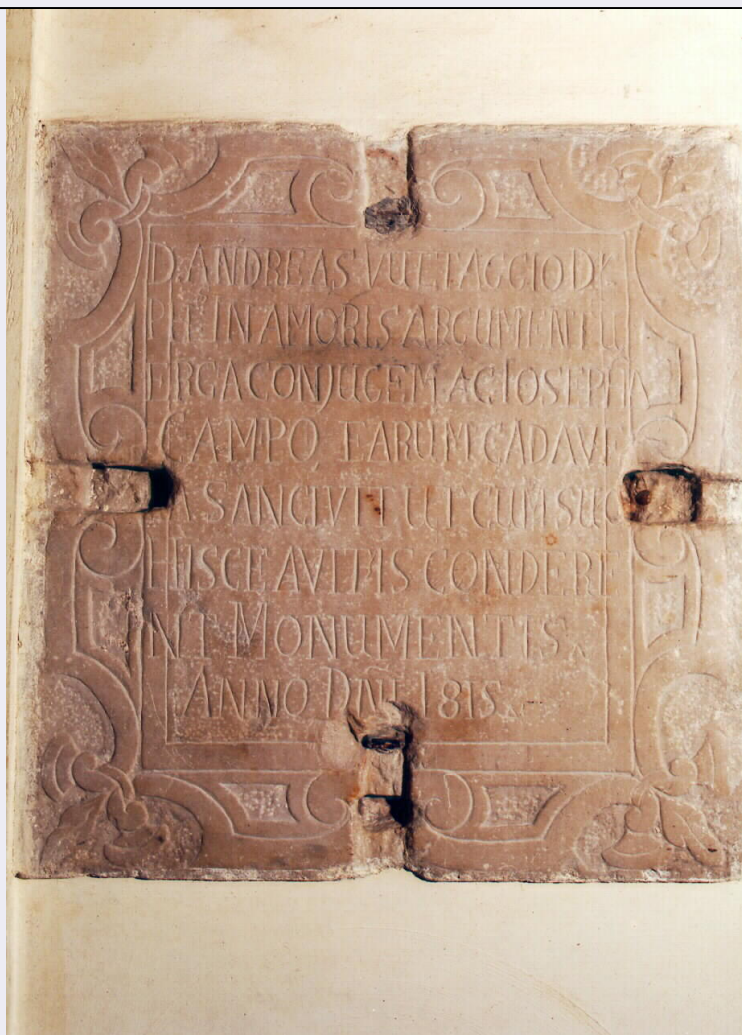 D. ANDREAS VULTAGGIO D.
IN AMORIS ARGUMENTU
ERGA CONJUGEM AC IOSEPHA
CAMPO, EARUM CADAVE
RA SANCIVIT UT CUM SUO
HISCE AVITIS CONDERE
NT MONUMENTIS.
ANNO DNI 1815.